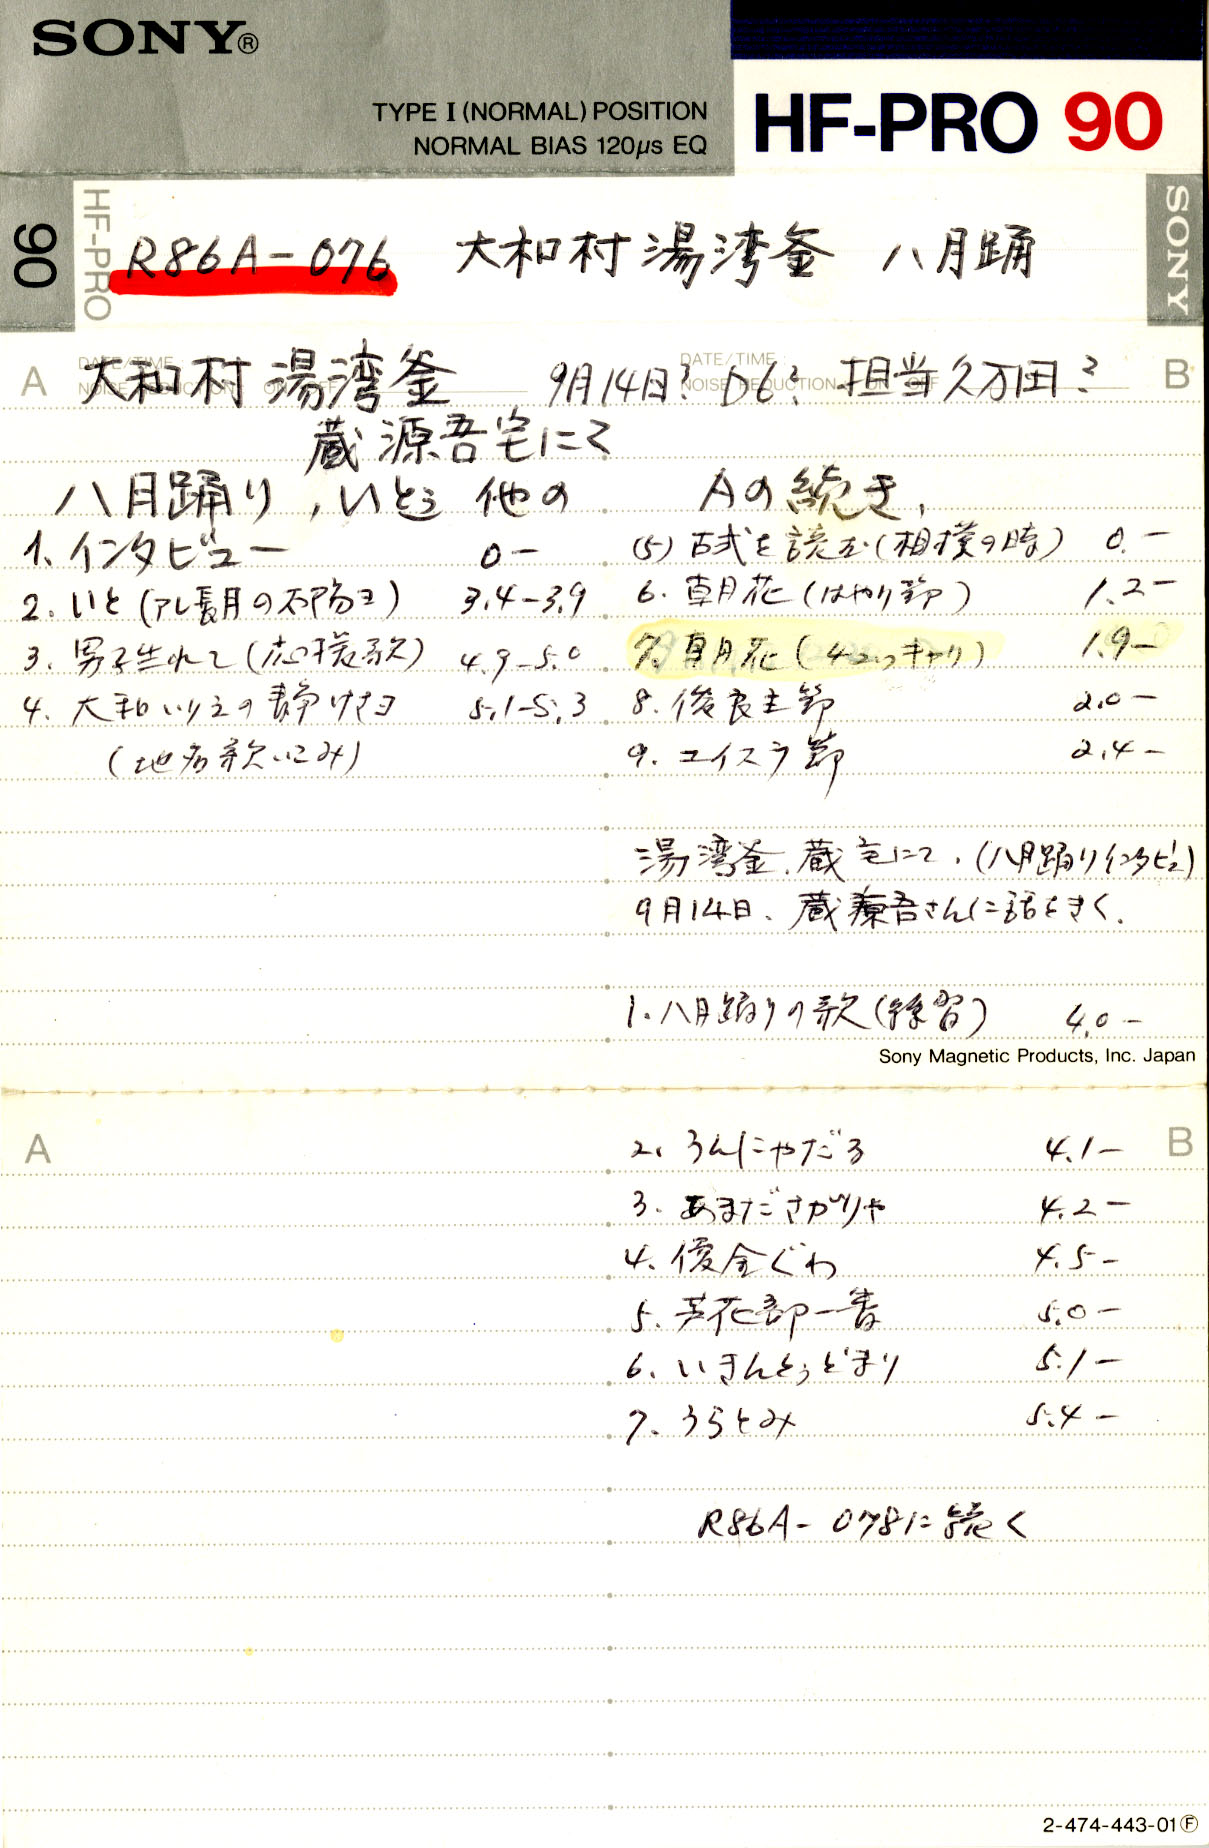 SONY®
TYPE I (NORMAL) POSITION
NORMAL BIAS 120µs EQ
HF-PRO 90
90
HF-PRO
SONY
R86A-076 大和村湯湾釜 八月踊
A
DATE/TIME
B
DATE/TIME :
NOISE REDUCTION
大和村湯湾釜 9月14日? D6? 担当久万田?
蔵源吾宅にて
八月踊り、いとぅ 他の
1. インタビュー 0-
2. いと 3.4-3.9
3. 男子生れて 4.9-5.0
4. 大和いり立の静けさヨ 5.1-5.3
Aの続き、
(5) 古式を読む(相撲の時) 0.-
6. 朝花(はやり節) 1.2-
7. 朝花(ちゅっきゃり) 1.9-
8. 俊良主節 2.0-
9. エイスラ節 2.4-
湯湾釜、蔵宅にて、(八月踊りインタビュー)
9月14日、蔵源吾さんに話をきく.
1. 八月踊りの歌(練習) 4.0-
Sony Magnetic Products, Inc. Japan
A
B
2. うんにゃだる 4.1-
3. あまださがりゃ 4.2-
4. 俊金ぐわ 4.5-
5. 芦花部一番 5.0-
6. いきんとぅどまり 5.1-
7. うらとみ 5.4-
R86A-078に続く
2-474-443-01Ⓕ